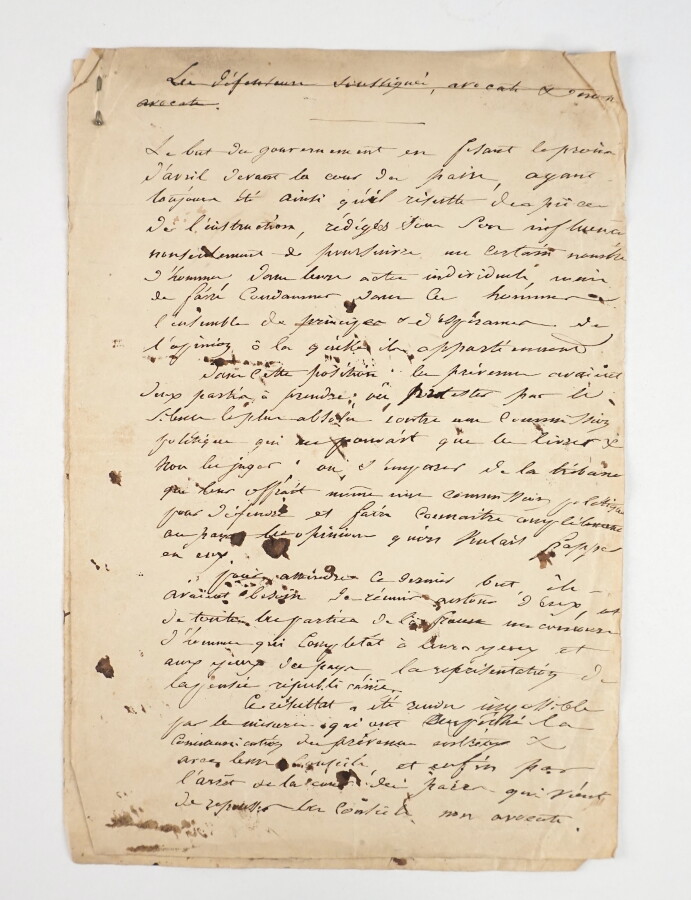 Les défenseurs soussignés, avocats & non
avocats.
Le but du gouvernement en fesant le procès
d'avril devant la cour des pairs, ayant
toujours été ainsi qu'il résulte des pièces
de l'instruction, rédigés sous son influence
nonseulement de poursuivre un certain nombre
d'hommes dans leurs actes individuels, mais
de faire condamner dans ces hommes
l'ensemble de principes & d'espérances de
l'opinion à la quelle ils appartiennent
Dans cette position les prévenus avaient
deux partis à prendre; ou protester par le
silence le plus absolu contre une commission
politique qui ne pouvait que les livrer &
non les juger; ou s'emparer de la tribune
que leur offrait même une commission politique
pour défendre et faire connaitre complètement
au pays les opinions qu'on voulait frapper
en eux.
Pour atteindre ce dernier but, ils
avaient besoin de réunir autour d'eux, et
de toutes les parties de la france un concours
d'hommes qui complétat à leurs yeux et
aux yeux du pays la représentation de
la pensée républicaine.
Ce résultat a été rendu impossible
par les mesures qui ont empêché la
communication des prévenus entr'eux &
avec leurs conseils et enfin par
l'arrêt de la cour des pairs qui vient
de repousser les conseils non avocats.